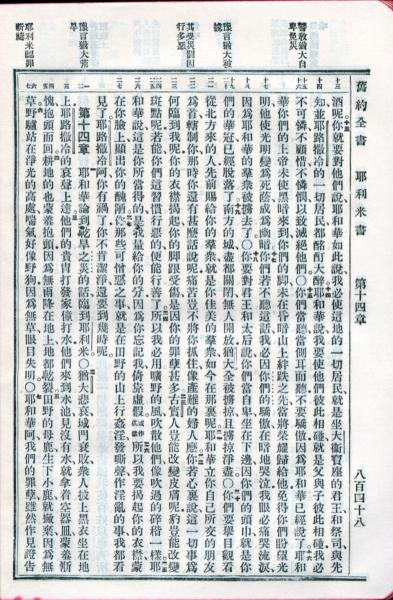 舊約全書 耶利米書 第十四章 八百四十八
酒呢你就要對他們說耶和華如此說我必使這地的一切居民就是坐大衛寶座的君王和祭司與先
知並耶路撒冷的一切居民都酩酊大醉耶和華說我要使他們彼此相碰就是父與子彼此相碰我必
不可憐不顧惜不憐憫以致滅絕他們○你們當聽當側耳而聽不要驕傲因為耶和華已經說了耶和
華你們的上帝未使黑暗來到你們的腳未在昏暗山上絆跌之先當將榮耀歸給他免得你們盼望光
明他使光明變為死蔭成為幽暗你們若不聽這話我必因你們的驕傲在暗地哭泣我眼必痛哭流淚
因為耶和華的羣衆被擄去了○你要對君王和太后說你們當自卑坐在下邊因你們的頭巾就是你
們的華冠已經脫落了南方的城盡都關閉無人開放猶大全被擄掠且擄掠淨盡○你們要舉目觀看
從北方來的人先前賜給你的羣衆就是你佳美的羣衆如今在那裏呢耶和華立你自己所交的朋友
為首轄制你那時你還有甚麼話說呢痛苦豈不將你抓住像產難的婦人麼你若心裏說這一切事為
何臨到我呢你的衣襟揭起你的腳跟受傷是因你的罪孽甚多古實人豈能改變皮膚呢豹豈能改變
斑點呢若能你們這習慣行惡的便能行善了所以我必用曠野的風吹散他們像吹過的碎稭一樣耶
和華說這是你所當得的是我量給你的分因為你忘記我倚靠虛假所以我要揭起你的衣襟蒙
在你臉上顯出你的醜陋你那些可憎惡之事就是在田野的山上行姦淫發嘶聲作淫亂的事我都看
見了耶路撒冷阿你有禍了你不肯潔淨還要到幾時呢
第十四章 耶和華論到乾旱之災的話臨到耶利米○猶大悲哀城門衰敗衆人披上黑衣坐在地
上耶路撒冷的哀聲上達他們的貴胄打發家僮打水他們來到水池見沒有水就拿着空器皿蒙羞慚
愧抱頭而回耕地的也蒙羞抱頭因為無雨降在地上地都乾裂田野的母鹿生下小鹿就撇棄因為無
草野驢站在淨光的高處喘氣好像野狗因為無草眼目失明○耶和華阿我們的罪孽雖然作見證告